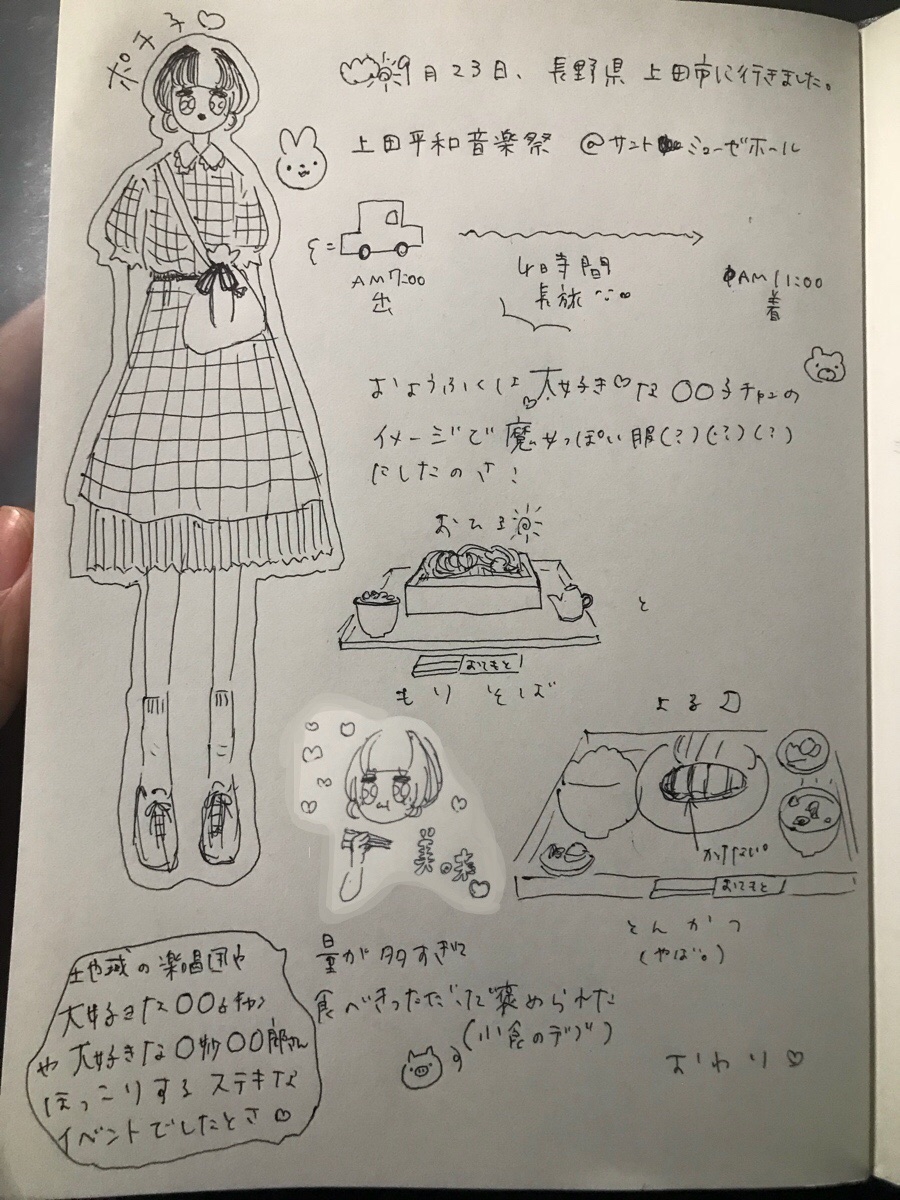 ポチ子♡
9月23日、長野県 上田市に行きました。
上田平和音楽祭 @サントミューゼホール
AM7:00
出
4時間
長旅
AM11:00
着
おようふくは大好き♡な〇〇子チャンの
イメージで魔女っぽい服(?)(?)(?)
にしたのさ!
おひる
と
おてもと
もりそば
よる
美味
かつ
おてもと
とんかつ
(やば。)
量が多すぎて
食べきっただけで褒められた
(小食のデブ)
おわり♡
地域の楽唱団や
大好きな〇〇子チャン
や大好きな〇妙〇〇郎さん
ほっこりするステキな
イベントでしたとさ♡